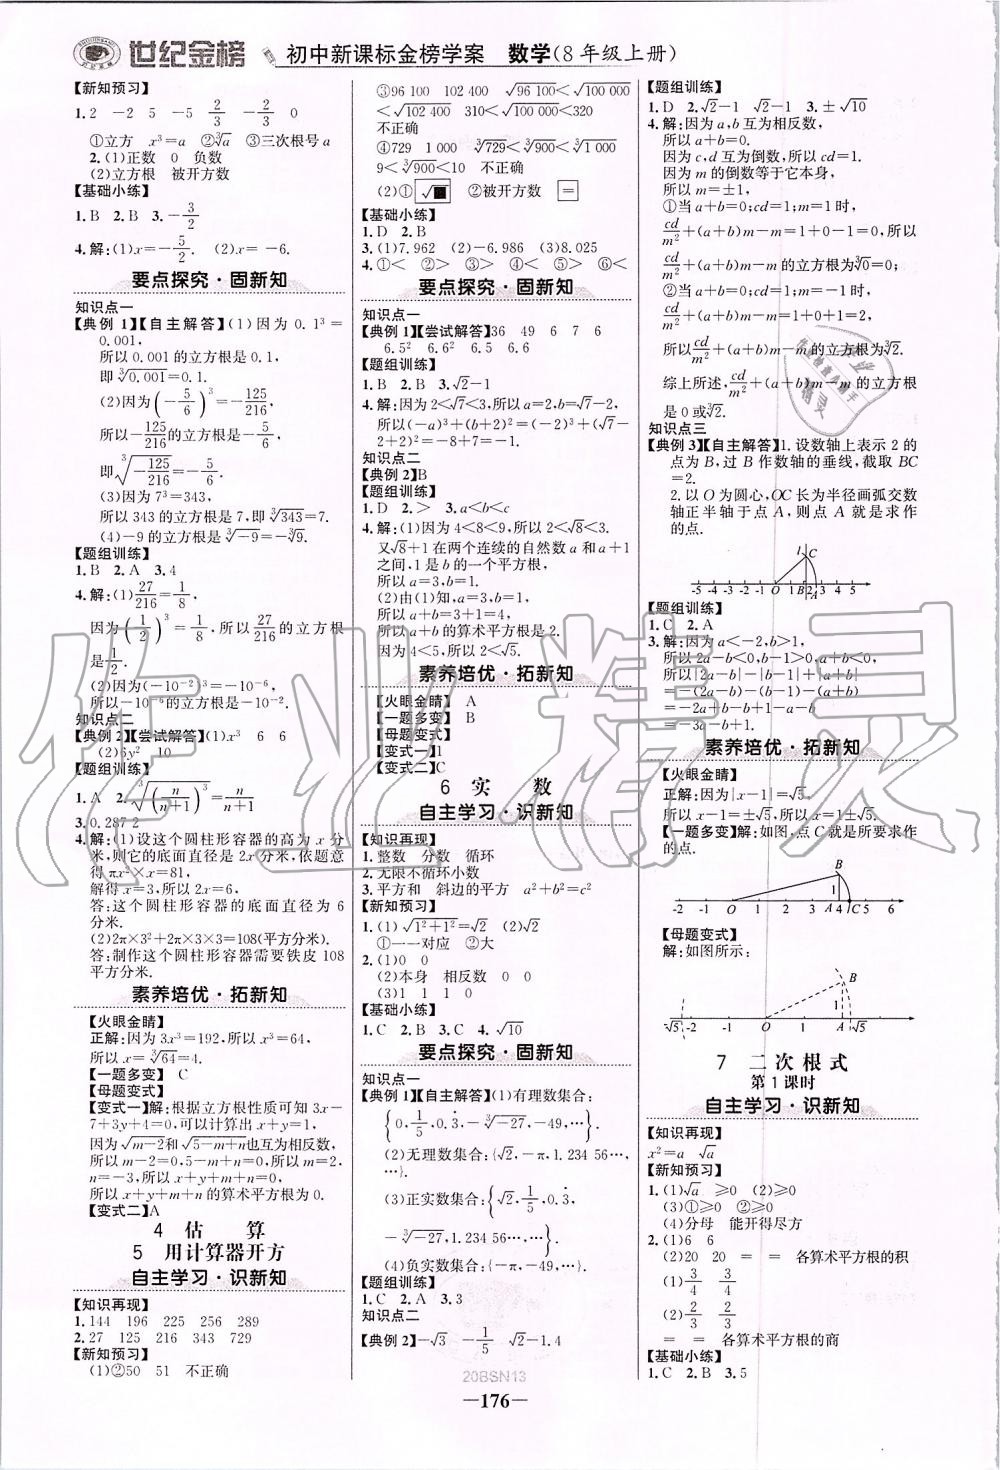 世纪金榜 初中新课标金榜学案 数学(8年级上册)
【新知预习】
1.2 -2 5 -5 2/3 -2/3 0
①立方 x³=a ②∛a ③三次根号a
2.(1)正数 0 负数
(2)立方根 被开方数
【基础小练】
1.B 2.B 3.-3/2
4.解:(1)x=-5/2. (2)x=-6.
要点探究·固新知
知识点一
【典例1】【自主解答】(1)因为0.1³=
0.001,
所以0.001的立方根是0.1,
即∛0.001=0.1.
(2)因为(-5/6)³=-125/216,
所以-125/216的立方根是-5/6,
即∛(-125/216)=-5/6.
(3)因为7³=343,
所以343的立方根是7,即∛343=7.
(4)-9的立方根是∛-9=-∛9.
【题组训练】
1.B 2.A 3.4
4.解:(1)27/216=1/8,
因为(1/2)³=1/8,所以27/216的立方根
是1/2.
(2)因为(-10⁻²)³=-10⁻⁶,
所以-10⁻⁶的立方根是-10⁻².
知识点二
【典例2】【尝试解答】(1)x³ 6 6
(2)6y² 10
【题组训练】
1.A 2.∛((n/(n+1))³)=n/(n+1)
3.0.287 2
4.解:(1)设这个圆柱形容器的高为x分
米,则它的底面直径是2x分米,依题意
得πx²×x=81,
解得x=3,所以2x=6,
答:这个圆柱形容器的底面直径为6
分米.
(2)2π×3²+2π×3×3=108(平方分米).
答:制作这个圆柱形容器需要铁皮108
平方分米.
素养培优·拓新知
【火眼金睛】
正解:因为3x³=192,所以x³=64,
所以x=∛64=4.
【一题多变】 C
【母题变式】
【变式一】解:根据立方根性质可知3x-
7+3y+4=0,可以计算出x+y=1,
因为√m-2和√5-m+n也互为相反数,
所以m-2=0,5-m+n=0,所以m=2,
n=-3,所以x+y+m+n=0,
所以x+y+m+n的算术平方根为0.
【变式二】A
4 估 算
5 用计算器开方
自主学习·识新知
【知识再现】
1.144 196 225 256 289
2.27 125 216 343 729
【新知预习】
(1)②50 51 不正确
③96 100 102 400 √96 100<√100 000
<√102 400 310<√100 000<320
不正确
④729 1 000 ∛729<∛900<∛1 000
9<∛900<10 不正确
(2)①√■ ②被开方数 =
【基础小练】
1.D 2.B
3.(1)7.962 (2)-6.986 (3)8.025
4.①< ②> ③> ④< ⑤> ⑥<
要点探究·固新知
知识点一
【典例1】【尝试解答】36 49 6 7 6
6.5² 6.6² 6.5 6.6
【题组训练】
1.B 2.B 3.√2-1
4.解:因为2<√7<3,所以a=2,b=√7-2,
所以(-a)³+(b+2)²=(-2)³+(√7-
2+2)²=-8+7=-1.
知识点二
【典例2】B
【题组训练】
1.D 2.> 3.a<b<c
4.解:(1)因为4<8<9,所以2<√8<3.
又√8+1在两个连续的自然数a和a+1
之间,1是b的一个平方根,
所以a=3,b=1.
(2)由(1)知,a=3,b=1,
所以a+b=3+1=4,
所以a+b的算术平方根是2.
因为4<5,所以2<√5.
素养培优·拓新知
【火眼金睛】 A
【一题多变】 B
【母题变式】
【变式一】1
【变式二】C
6 实 数
自主学习·识新知
【知识再现】
1.整数 分数 循环
2.无限不循环小数
3.平方和 斜边的平方 a²+b²=c²
【新知预习】
1.(1)√1²+1²=√2 (2)√2
①一一对应 ②大
2.(1)0 0
(2)本身 相反数 0 0
(3)1 1 1 0
【基础小练】
1.C 2.B 3.C 4.√10
要点探究·固新知
知识点一
【典例1】【自主解答】(1)有理数集合:
{0,1/5,0.3̇,-∛-27,-49,…}.
(2)无理数集合:{√2,-π,1.234 56…,
…}.
(3)正实数集合:{√2,1/5,0.3̇,
-∛-27,1.234 56…,…}.
(4)负实数集合:{-π,-49,…}.
【题组训练】
1.C 2.A 3.3
知识点二
【典例2】-√3 -1/5 √2-1.4
【题组训练】
1.D 2.√2-1 √2-1 3.±√10
4.解:因为a,b互为相反数,
所以a+b=0.
因为c,d互为倒数,所以cd=1.
因为m的倒数等于它本身,
所以m=±1,
①当a+b=0;cd=1;m=1时,
cd/m²+(a+b)m-m=1+0-1=0,所以
cd/m²+(a+b)m-m的立方根为∛0=0;
②当a+b=0;cd=1;m=-1时,
cd/m²+(a+b)m-m=1+0+1=2,
所以cd/m²+(a+b)m-m的立方根为∛2.
综上所述,cd/m²+(a+b)m-m的立方根
是0或∛2.
知识点三
【典例3】【自主解答】1.设数轴上表示2的
点为B,过B作数轴的垂线,截取BC
=2.
2.以O为圆心,OC长为半径画弧交数
轴正半轴于点A,则点A就是求作
的点.
l C
-5 -4 -3 -2 -1 O 1 B 2 A 3 4 5
【题组训练】
1.C 2.A
3.解:因为a<-2,b>1,
所以2a-b<0,b-1>0,a+b<0,
所以|2a-b|-|b-1|+|a+b|
=-(2a-b)-(b-1)-(a+b)
=-2a+b-b+1-a-b
=-3a-b+1.
素养培优·拓新知
【火眼金睛】
正解:因为|x-1|=√5,
所以x-1=±√5,所以x=1±√5.
【一题多变】解:如图,点C就是所要求作
的点.
B
1
-2 -1 0 1 2 3 A 4 C 5 6
【母题变式】
解:如图所示:
B
1
-√5 -2 -1 0 1 A √5
7 二次根式
第1课时
自主学习·识新知
【知识再现】
x²=a √a
【新知预习】
1.(1)√a ≥0 (2)≥0
(3)①≥0 ②≥0
(4)分母 能开得尽方
2.(1)6 6
(2)20 20 = = 各算术平方根的积
(1)3/4 3/4
(2)2/3 2/3
= = 各算术平方根的商
【基础小练】
1.C 2.B 3.5
20BSN13
—176—
作业精灵